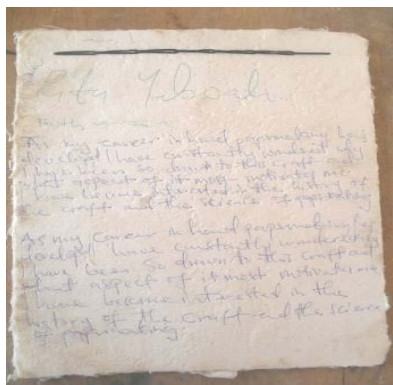 As my career in hand papermaking has
developed I have constantly wondered why
I have been so drawn to this craft and
what aspect of it most motivates me.
I have become interested in the history of
the craft and the science of papermaking
As my career in hand papermaking has
developed I have constantly wondered why
I have been so drawn to this craft and
what aspect of it most motivates me
I have become interested in the
history of the craft and the science
of papermaking.